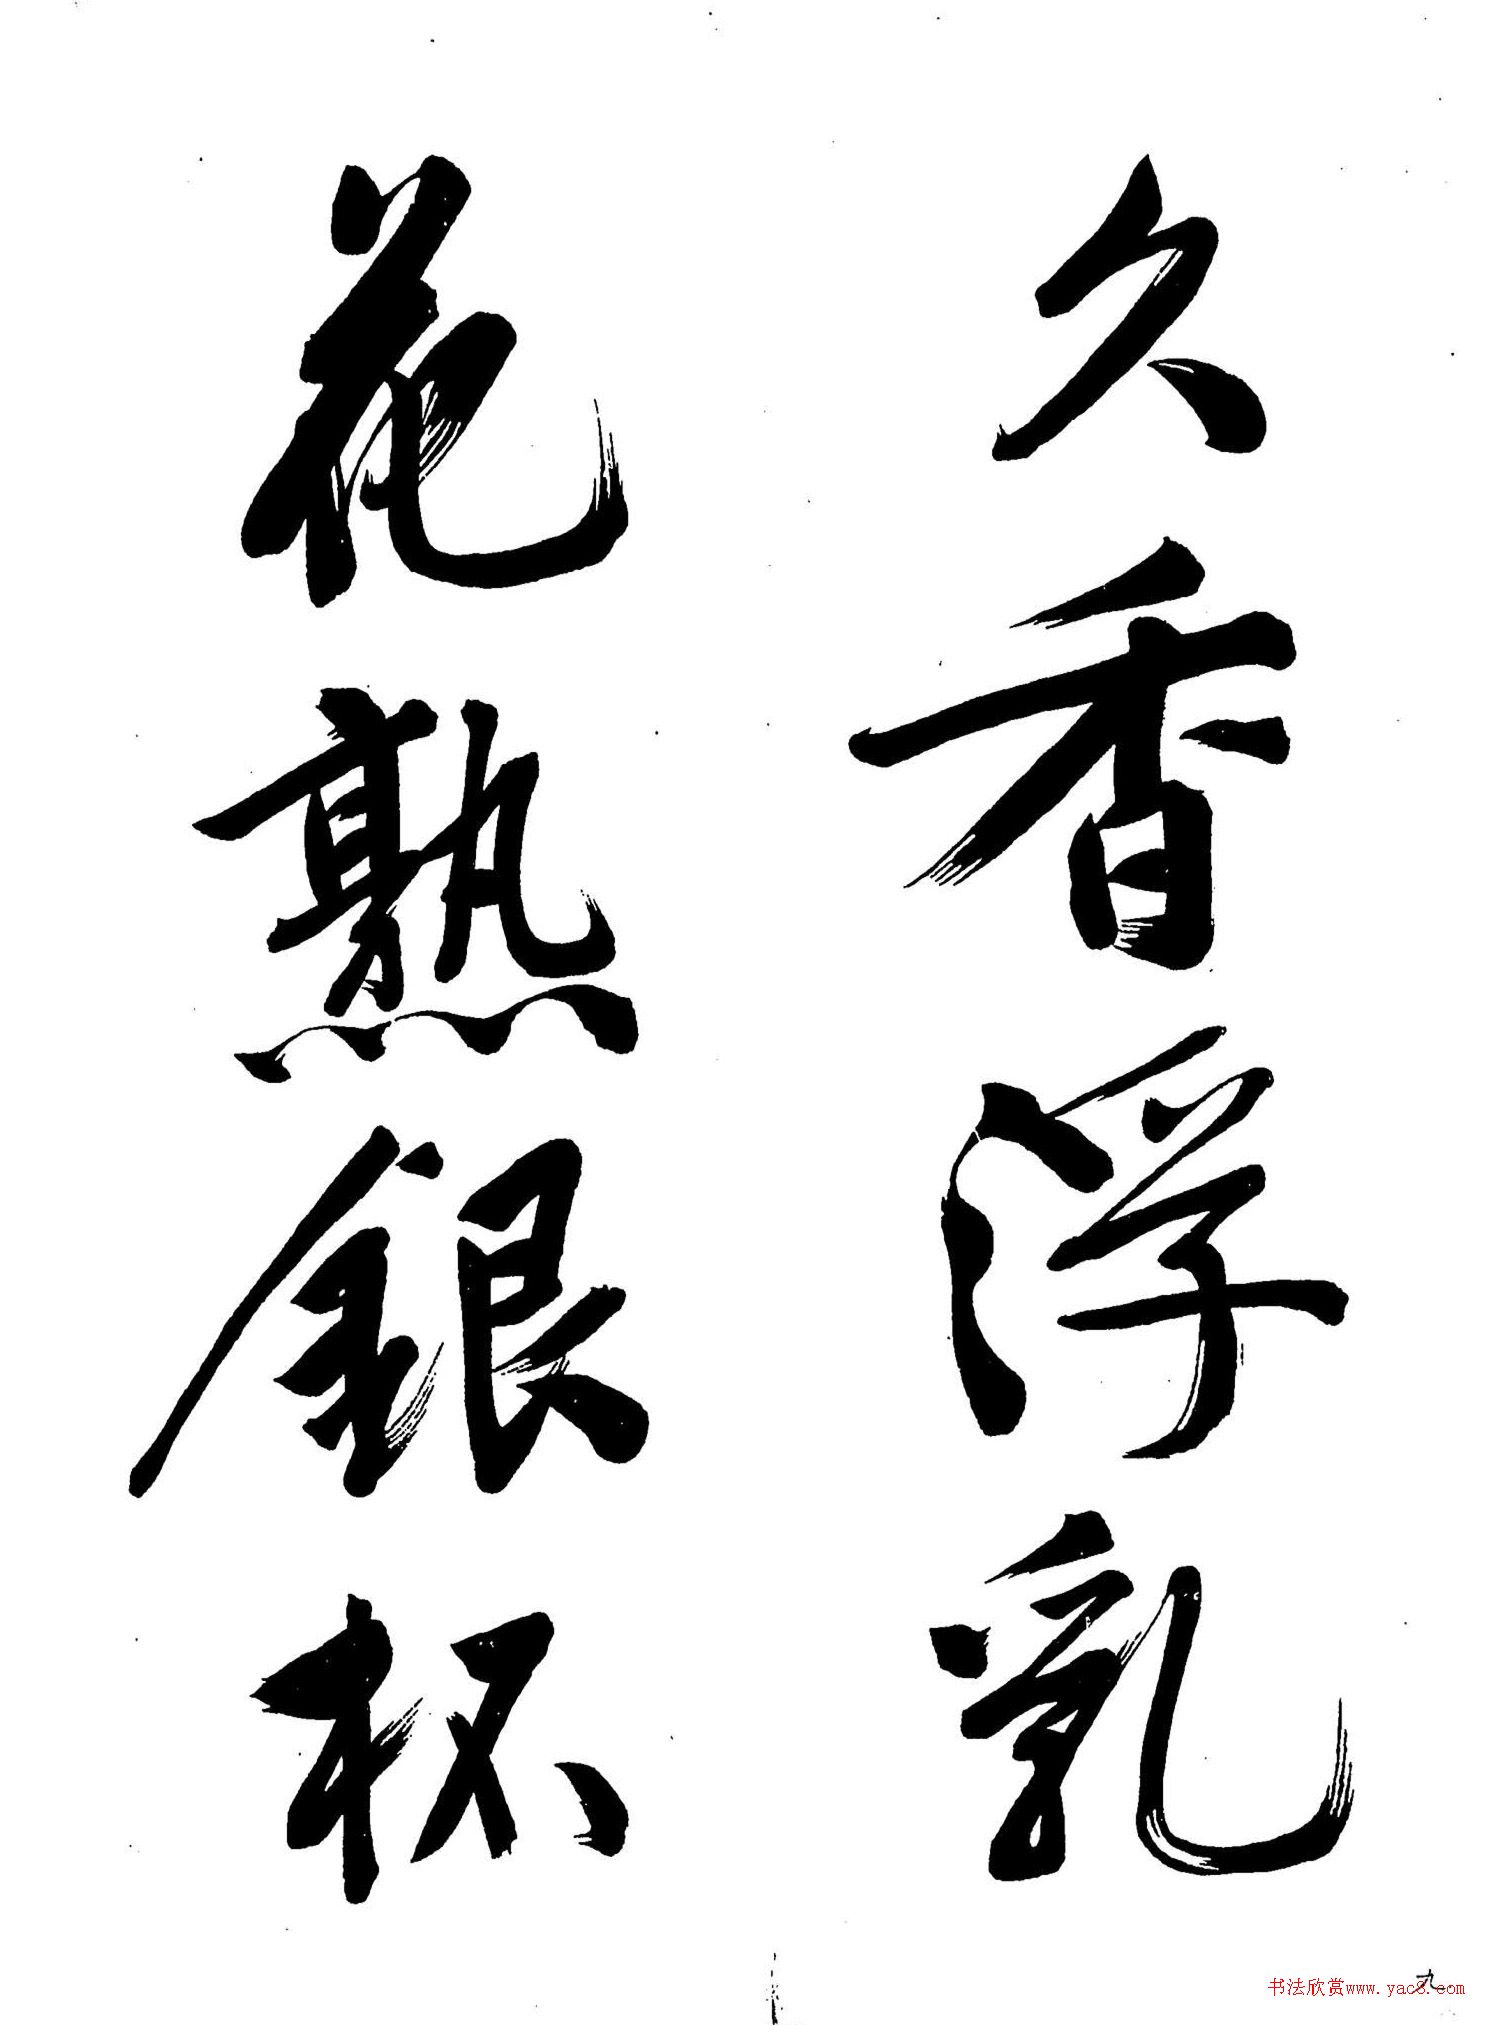 久香浮乳
花熟銀杯
九
书法欣赏www.yac8.com